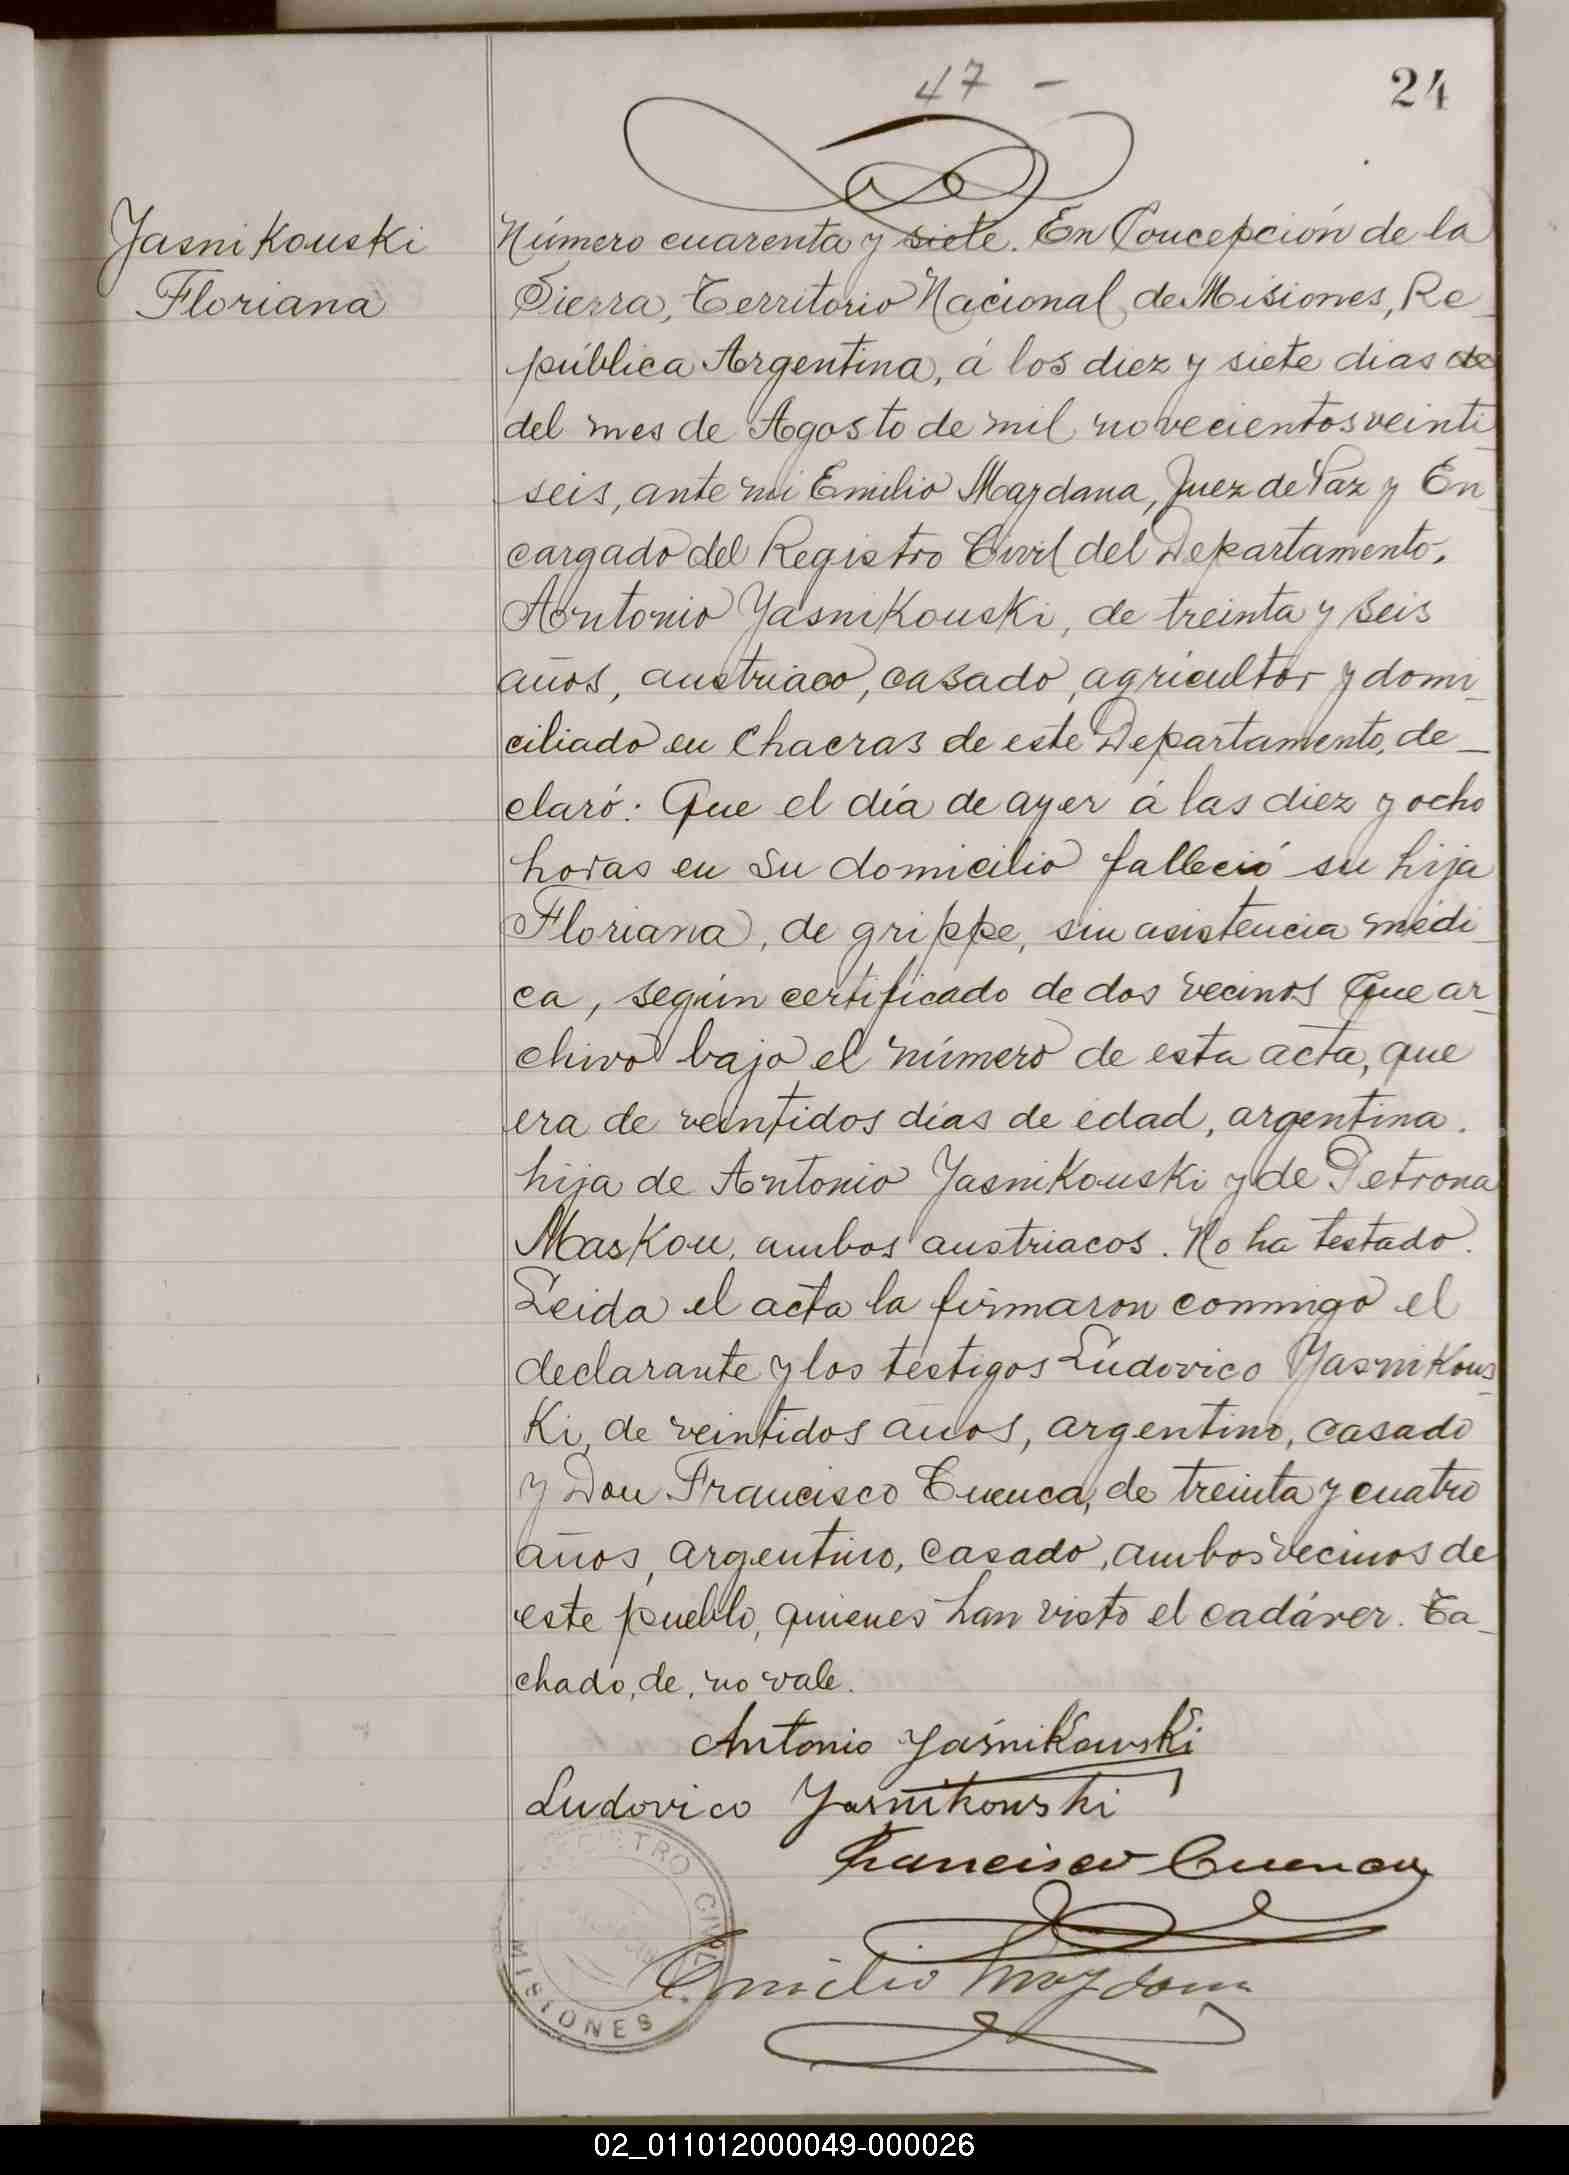 47 -
24
Yasnikouski
Floriana
Número cuarenta y siete. En Concepción de la
Sierra, Territorio Nacional de Misiones, Re_
pública Argentina, á los diez y siete dias de
del mes de Agosto de mil novecientos veinti_
seis, ante mi Emilio Maydana, Juez de Paz y En_
cargado del Registro Civil del Departamento,
Antonio Yasnikouski, de treinta y seis
años, austriaco, casado, agricultor y domi_
ciliado en Chacras de este Departamento, de_
claró: Que el día de ayer á las diez y ocho
horas en su domicilio falleció su hija
Floriana, de grippe, sin asistencia médi_
ca, según certificado de dos vecinos que ar_
chivo bajo el número de esta acta, que
era de veintidos días de edad, argentina.
hija de Antonio Yasnikouski y de Petrona
Maskou, ambos austriacos. No ha testado.
Leida el acta la firmaron conmigo el
declarante y los testigos Ludovico Yasnikous_
ki, de veintidos años, argentino, casado
y Don Francisco Cuenca, de treinta y cuatro
años, argentino, casado, ambos vecinos de
este pueblo, quienes han visto el cadáver. Ta_
chado, de, no vale.
Antonio Yaśnikowski
Ludovico Yasnikowski
Francisco Cuenca
Emilio Maydana
REGISTRO CIVIL
MISIONES
02_011012000049-000026